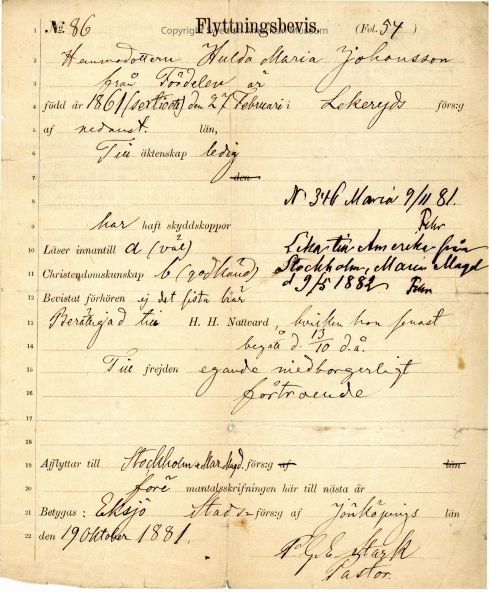 Copyright Swedish American Museum
1 № 86 Flyttningsbevis. (Fol. 54)
2 Hemmadottern Hulda Maria Johansson
3 från är
4 född år 1861 (sextioett) den 27 Februari i Lekeryds förs:g
5 af nedanst. län,
6 Till äktenskap ledig
7 den
8 N 346 Maria 9/11 81.
9 har haft skyddskoppor Fehr
10 Läser innantill a (väl) Lika till Amerika från
11 Christendomskunskap b (godkänd) Stockholm, Maria Magd
12 Bevistat förhören ej det sista här d 9/5 1882 Fehr
13 Berättigad till H. H. Nattvard, hvilken hon senast
14 begått d. 13/10 d.å.
15 Till frejden egande medborgerligt
16 förtroende
17
18
19 Afflyttar till Stockholm Mar. Magd. förs:g af län
20 före mantalsskrifningen här till nästa år
21 Betygas: Eksjö Stads förs:g af Jönköpings län
22 den 19 Oktober 1881.
Pastor.